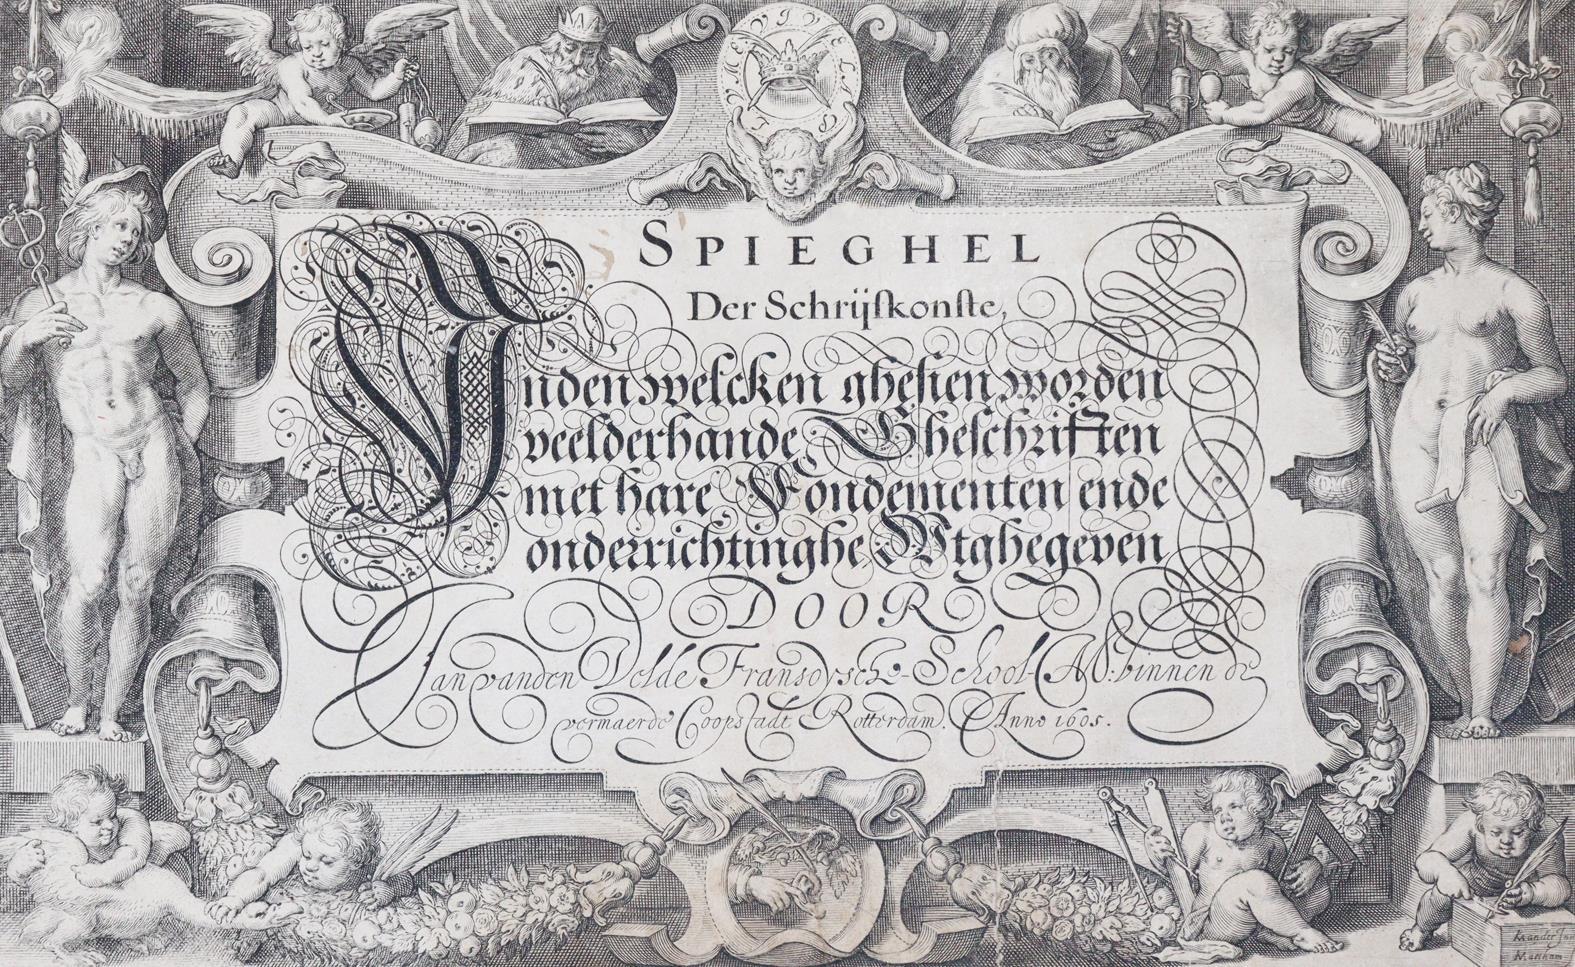 VIVE LA PLUME
SPIEGHEL
Der Schrijfkonste,
Inden welcken ghesien worden
veelderhande Gheschriften
met hare Fondementen ende
onderrichtinghe. Wtghegeven
DOOR
Jan vanden Velde Fransoysche-School-M: binnen de
vermaerde Coopstadt Rotterdam. Anno 1605.
K. Mander In
Matham